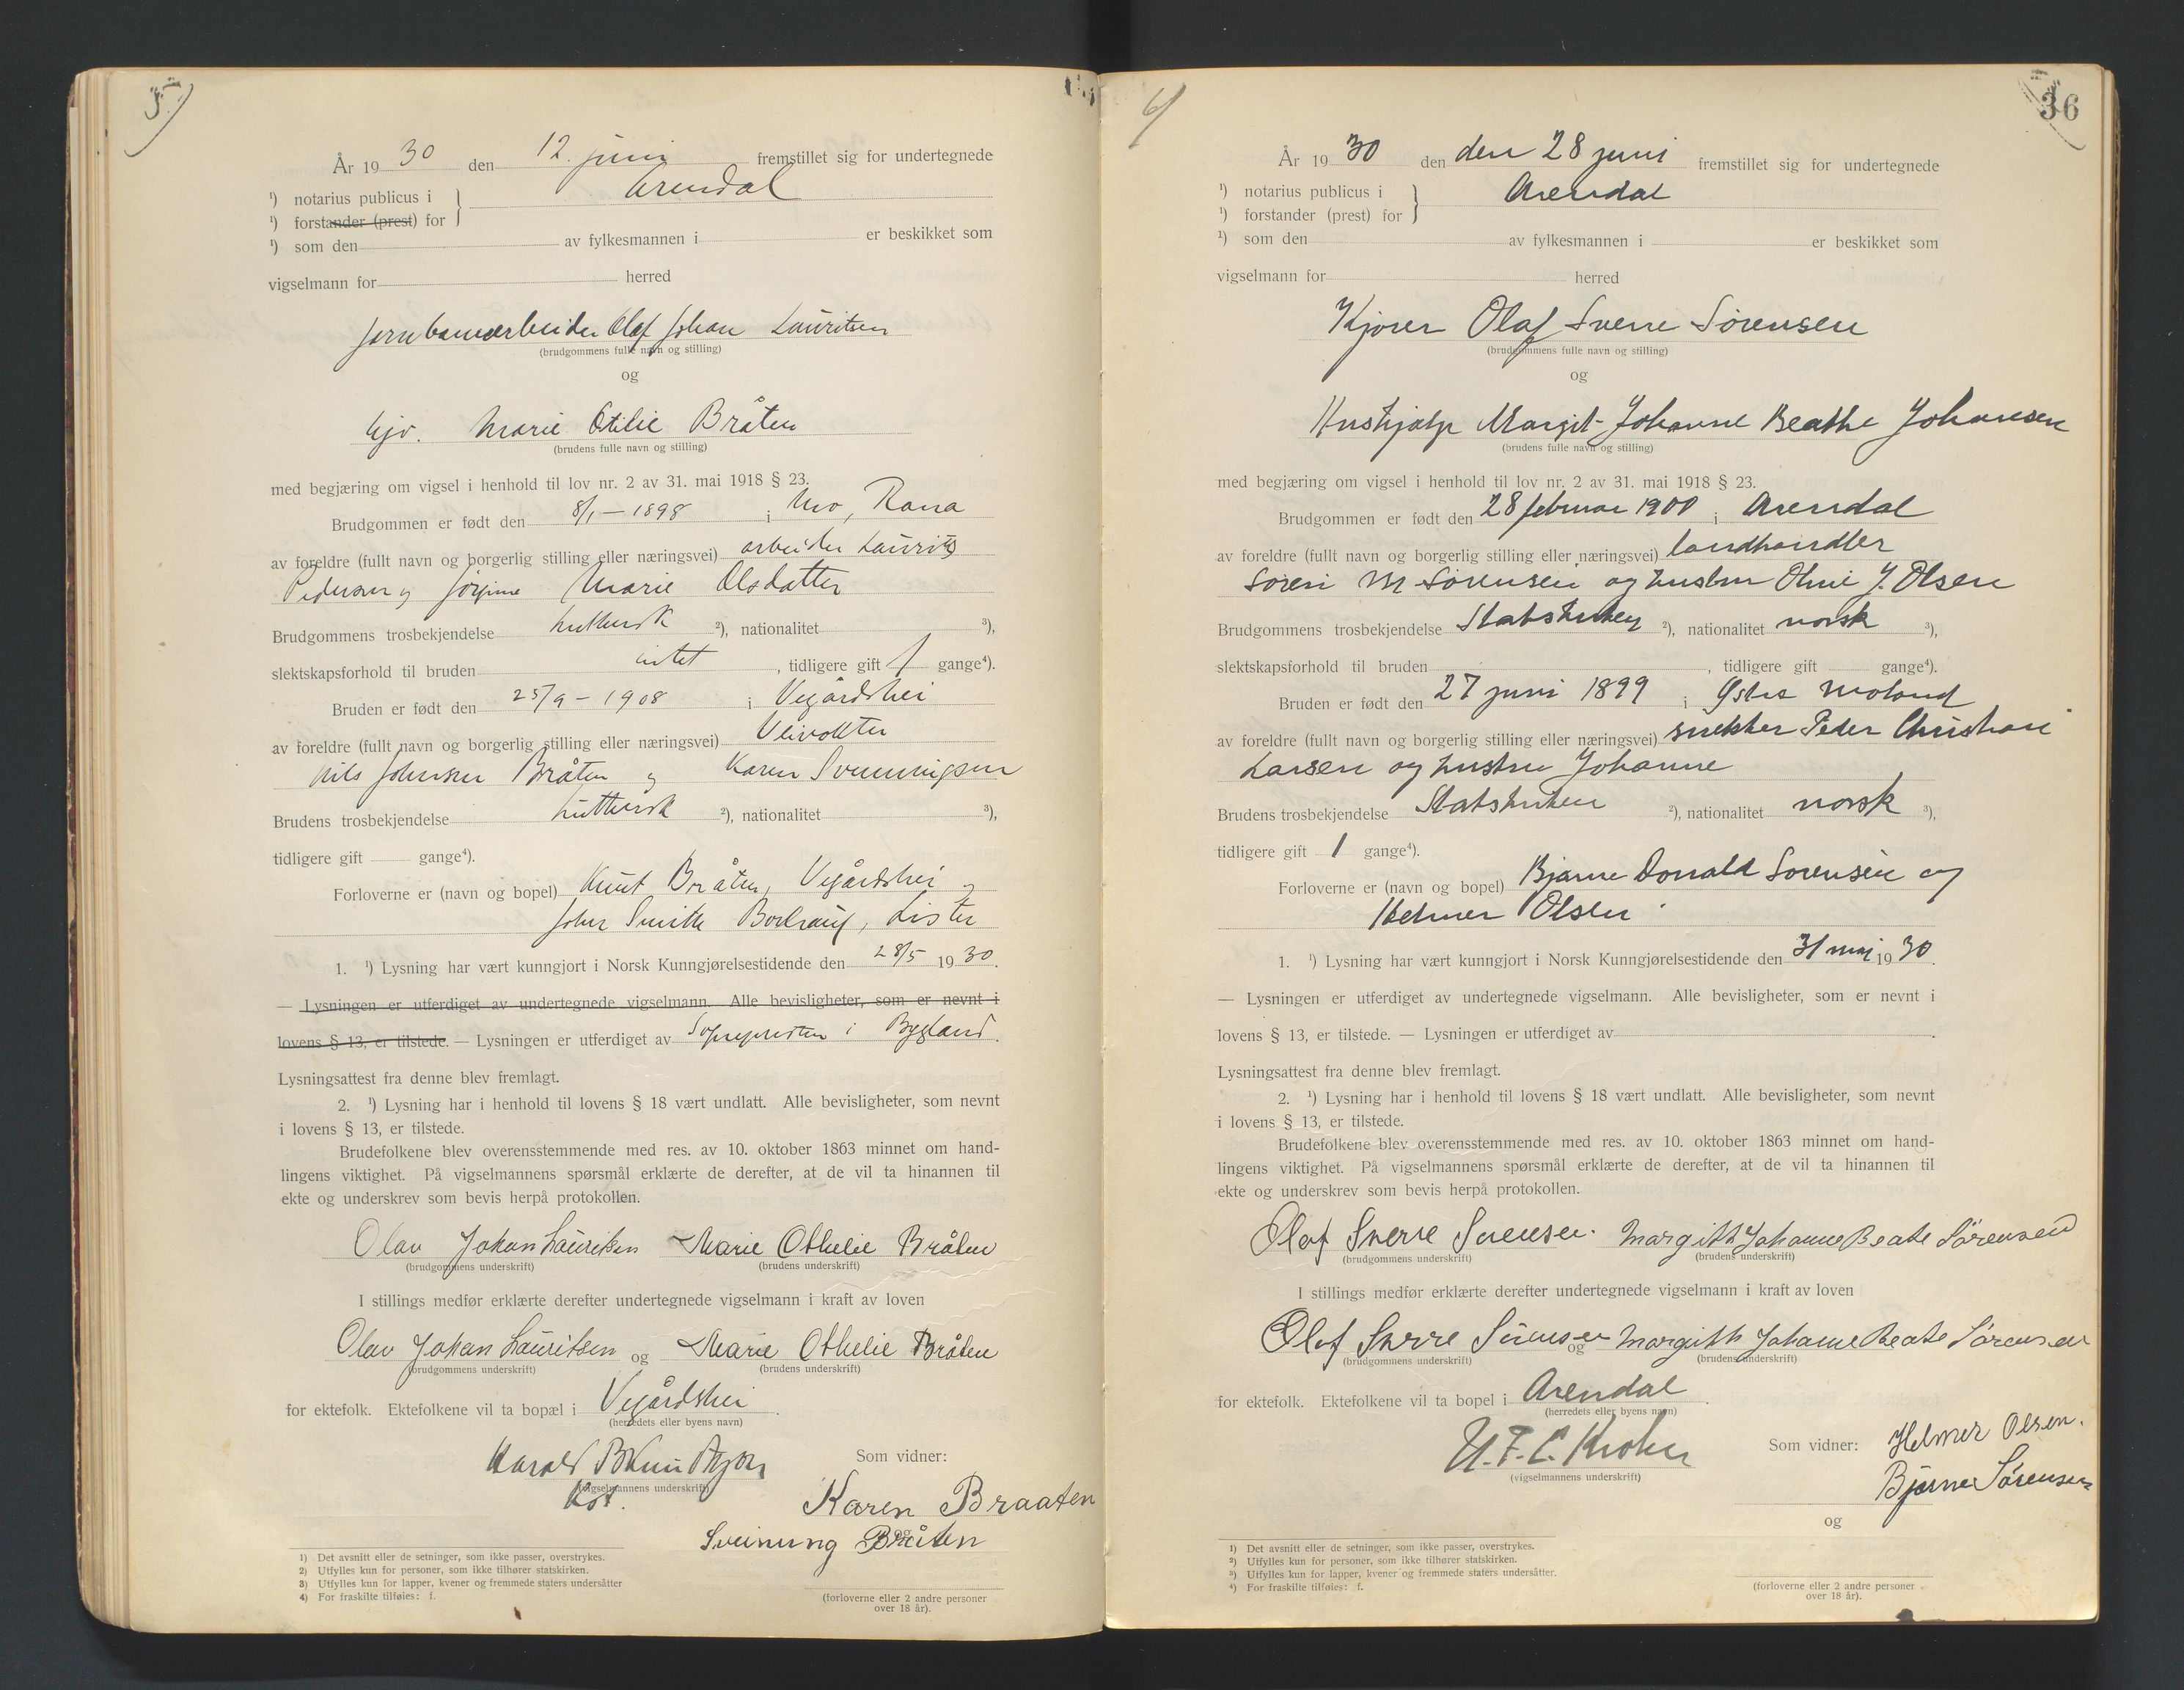 5)
År 1930 den 12. juni fremstillet sig for undertegnede
¹) notarius publicus i
Arendal
¹) forstander (prest) for
¹) som den av fylkesmannen i er beskikket som
vigselmann for herred
Jernbanearbeider Olaf Johan Lauritsen
(brudgommens fulle navn og stilling)
og
Marie Otilie Bråten
(brudens fulle navn og stilling)
med begjæring om vigsel i henhold til lov nr. 2 av 31. mai 1918 § 23.
Brudgommen er født den 8/1 – 1898 i Mo, Rana
av foreldre (fullt navn og borgerlig stilling eller næringsvei) arbeider Laurits
Pedersen og Jørgine Marie Olsdatter
Brudgommens trosbekjendelse luthersk ²), nationalitet ³),
slektskapsforhold til bruden intet, tidligere gift 1 gange⁴).
Bruden er født den 25/9 – 1908 i Vegårdshei
av foreldre (fullt navn og borgerlig stilling eller næringsvei) Veivokter
Nils Johnsen Bråten og Karen Svenningsen
Brudens trosbekjendelse luthersk ²), nationalitet ³),
tidligere gift gange⁴).
Forloverne er (navn og bopel) Knut Bråten, Vegårdshei og
John Smith, Lista
1. ¹) Lysning har vært kunngjort i Norsk Kunngjørelsestidende den 28/5 1930.
— Lysningen er utferdiget av undertegnede vigselmann. Alle bevisligheter, som er nevnt i
lovens § 13, er tilstede. — Lysningen er utferdiget av Sognepresten i Bygland.
Lysningsattest fra denne blev fremlagt.
2. ¹) Lysning har i henhold til lovens § 18 vært undlatt. Alle bevisligheter, som nevnt
i lovens § 13, er tilstede.
Brudefolkene blev overensstemmende med res. av 10. oktober 1863 minnet om hand-
lingens viktighet. På vigselmannens spørsmål erklærte de derefter, at de vil ta hinannen til
ekte og underskrev som bevis herpå protokollen.
Olav Johan Lauritsen Marie Othelie Bråten
(brudgommens underskrift) (brudens underskrift)
I stillings medfør erklærte derefter undertegnede vigselmann i kraft av loven
Olav Johan Lauritsen og Marie Othelie Bråten
(brudgommens underskrift) (brudens underskrift)
for ektefolk. Ektefolkene vil ta bopæl i Vegårdshei.
(herredets eller byens navn)
Harald
Som vidner:
(vigselmannens underskrift)
Karen Braaten
og
Sveinung Bråten
1) Det avsnitt eller de setninger, som ikke passer, overstrykes.
2) Utfylles kun for personer, som ikke tilhører statskirken.
3) Utfylles kun for lapper, kvener og fremmede staters undersåtter
4) For fraskilte tilføies: f.
(forloverne eller 2 andre personer
over 18 år).
6)
36
År 1930 den den 28 juni fremstillet sig for undertegnede
¹) notarius publicus i
Arendal
¹) forstander (prest) for
¹) som den av fylkesmannen i er beskikket som
vigselmann for herred
Kjører Olaf Sverre Sørensen
(brudgommens fulle navn og stilling)
og
Hushjælp Margit Johanne Beathe Johansen
(brudens fulle navn og stilling)
med begjæring om vigsel i henhold til lov nr. 2 av 31. mai 1918 § 23.
Brudgommen er født den 28 februar 1900 i Arendal
av foreldre (fullt navn og borgerlig stilling eller næringsvei) landhandler
Søren M Sørensen og hustru Oline J. Olsen
Brudgommens trosbekjendelse Statskirken ²), nationalitet norsk ³),
slektskapsforhold til bruden, tidligere gift gange⁴).
Bruden er født den 27 juni 1899 i Østre Moland
av foreldre (fullt navn og borgerlig stilling eller næringsvei) snekker Peder Christian
Larsen og hustru Johanne
Brudens trosbekjendelse Statskirken ²), nationalitet norsk ³),
tidligere gift 1 gange⁴).
Forloverne er (navn og bopel) Bjarne Donald Sørensen og
Helmer Olsen
1. ¹) Lysning har vært kunngjort i Norsk Kunngjørelsestidende den 31 mai 1930.
— Lysningen er utferdiget av undertegnede vigselmann. Alle bevisligheter, som er nevnt i
lovens § 13, er tilstede. — Lysningen er utferdiget av .
Lysningsattest fra denne blev fremlagt.
2. ¹) Lysning har i henhold til lovens § 18 vært undlatt. Alle bevisligheter, som nevnt
i lovens § 13, er tilstede.
Brudefolkene blev overensstemmende med res. av 10. oktober 1863 minnet om hand-
lingens viktighet. På vigselmannens spørsmål erklærte de derefter, at de vil ta hinannen til
ekte og underskrev som bevis herpå protokollen.
Olaf Sverre Sørensen. Margith Johanne Beate Sørensen
(brudgommens underskrift) (brudens underskrift)
I stillings medfør erklærte derefter undertegnede vigselmann i kraft av loven
Olaf Sverre Sørensen og Margith Johanne Beate Sørensen
(brudgommens underskrift) (brudens underskrift)
for ektefolk. Ektefolkene vil ta bopel i Arendal.
(herredets eller byens navn)
U. F. C. Krohn
(vigselmannens underskrift)
Som vidner: Helmer Olsen.
Bjarne Sørensen
og
1) Det avsnitt eller de setninger, som ikke passer, overstrykes.
²) Utfylles kun for personer, som ikke tilhører statskirken.
³) Utfylles kun for lapper, kvener og fremmede staters undersåtter.
⁴) For fraskilte tilføies: f.
(forloverne eller 2 andre personer
over 18 år).